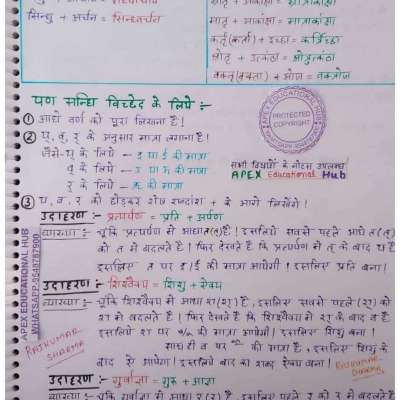 सिन्धु + अर्चन = सिन्ध्वर्चन
मातृ + आकांक्षा = मात्राकांक्षा
कर्तृ(कर्ता) + इच्छा = कर्त्रिच्छा
यण सन्धि विच्छेद के लिये :-
① आधे वर्ण को पूरा लिखना है।
② य्, व्, र् के अनुसार मात्रा लगाना है।
जैसे- य् के लिये - इ या ई की मात्रा
व् के लिये - उ या ऊ की मात्रा
र् के लिये - ऋ की मात्रा
APEX EDUCATIONAL HUB
PROTECTED
COPYRIGHT
सभी विषयों के नोट्स उपलब्ध
APEX Educational Hub
③ य, व, र को छोड़कर शेष शब्दांश + के आगे लिखेंगे।
उदाहरण :- प्रत्यर्पण = प्रति + अर्पण
व्याख्या :- चूंकि प्रत्यर्पण में आधा त(त्) है। इसलिये सबसे पहले आधे त(त्)
को त में बदलते है। फिर देखते है कि प्रत्यर्पण में त् के बाद य है
इसलिए त पर इ/ई की मात्रा आयेगी। इसलिए प्रति बना।
उदाहरण :- शिश्वैक्य = शिशु + ऐक्य
व्याख्या :- चूंकि शिश्वैक्य में आधा श(श्) है, इसलिए सबसे पहले (श्) को
श में बदलते है। फिर देखते है कि शिश्वैक्य में श् के बाद व है
इसलिये श पर की मात्रा आयेगी। इसलिए शिशु बना।
साथ ही व पर की मात्रा है, इसलिए शिशु के
बाद से आयेगा। इसलिए बाद का शब्द ऐक्य बना।
उदाहरण :- गुर्वाज्ञा = गुरु + आज्ञा
व्याख्या :- चूंकि गुर्वाज्ञा में आधा र(र्) है, इसलिए पहले र् को र में बदलते
APEX EDUCATIONAL HUB
WHATSAPP-9549787900
RAJKUMAR
SHARMA